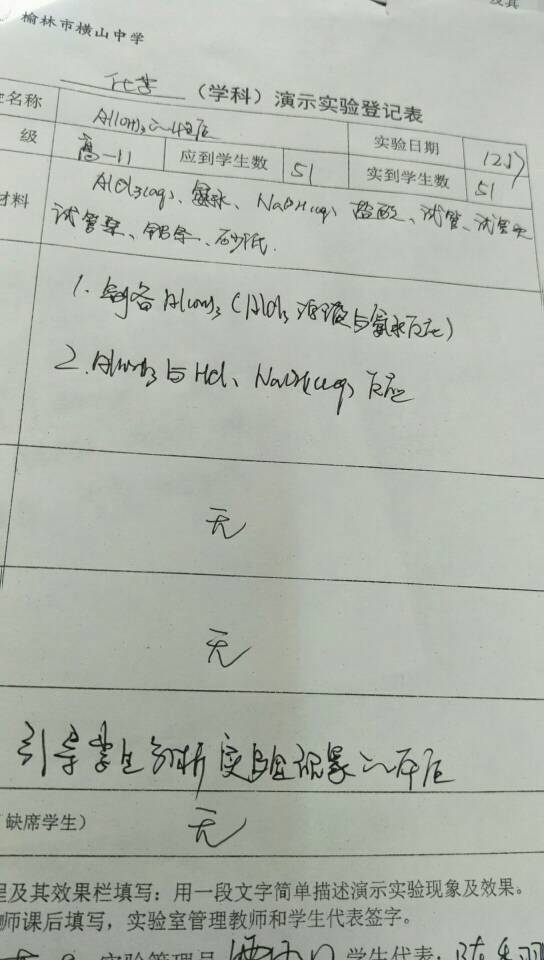 及其
榆林市横山中学
化学（学科）演示实验登记表
名称 Al(OH)3的性质 实验日期 12.17
级 高一11 应到学生数 51 实到学生数 51
材料 AlCl3(aq)、氨水、NaOH(aq)、盐酸、试管、试管夹
试管架、铝条、砂纸.
1. 制备Al(OH)3（AlCl3溶液与氨水反应）
2. Al(OH)3与HCl、NaOH(aq)反应
无
无
引导学生分析实验现象
缺席学生） 无
程及其效果栏填写：用一段文字简单描述演示实验现象及效果。
师课后填写，实验室管理教师和学生代表签字。
实验管理员 学生代表：